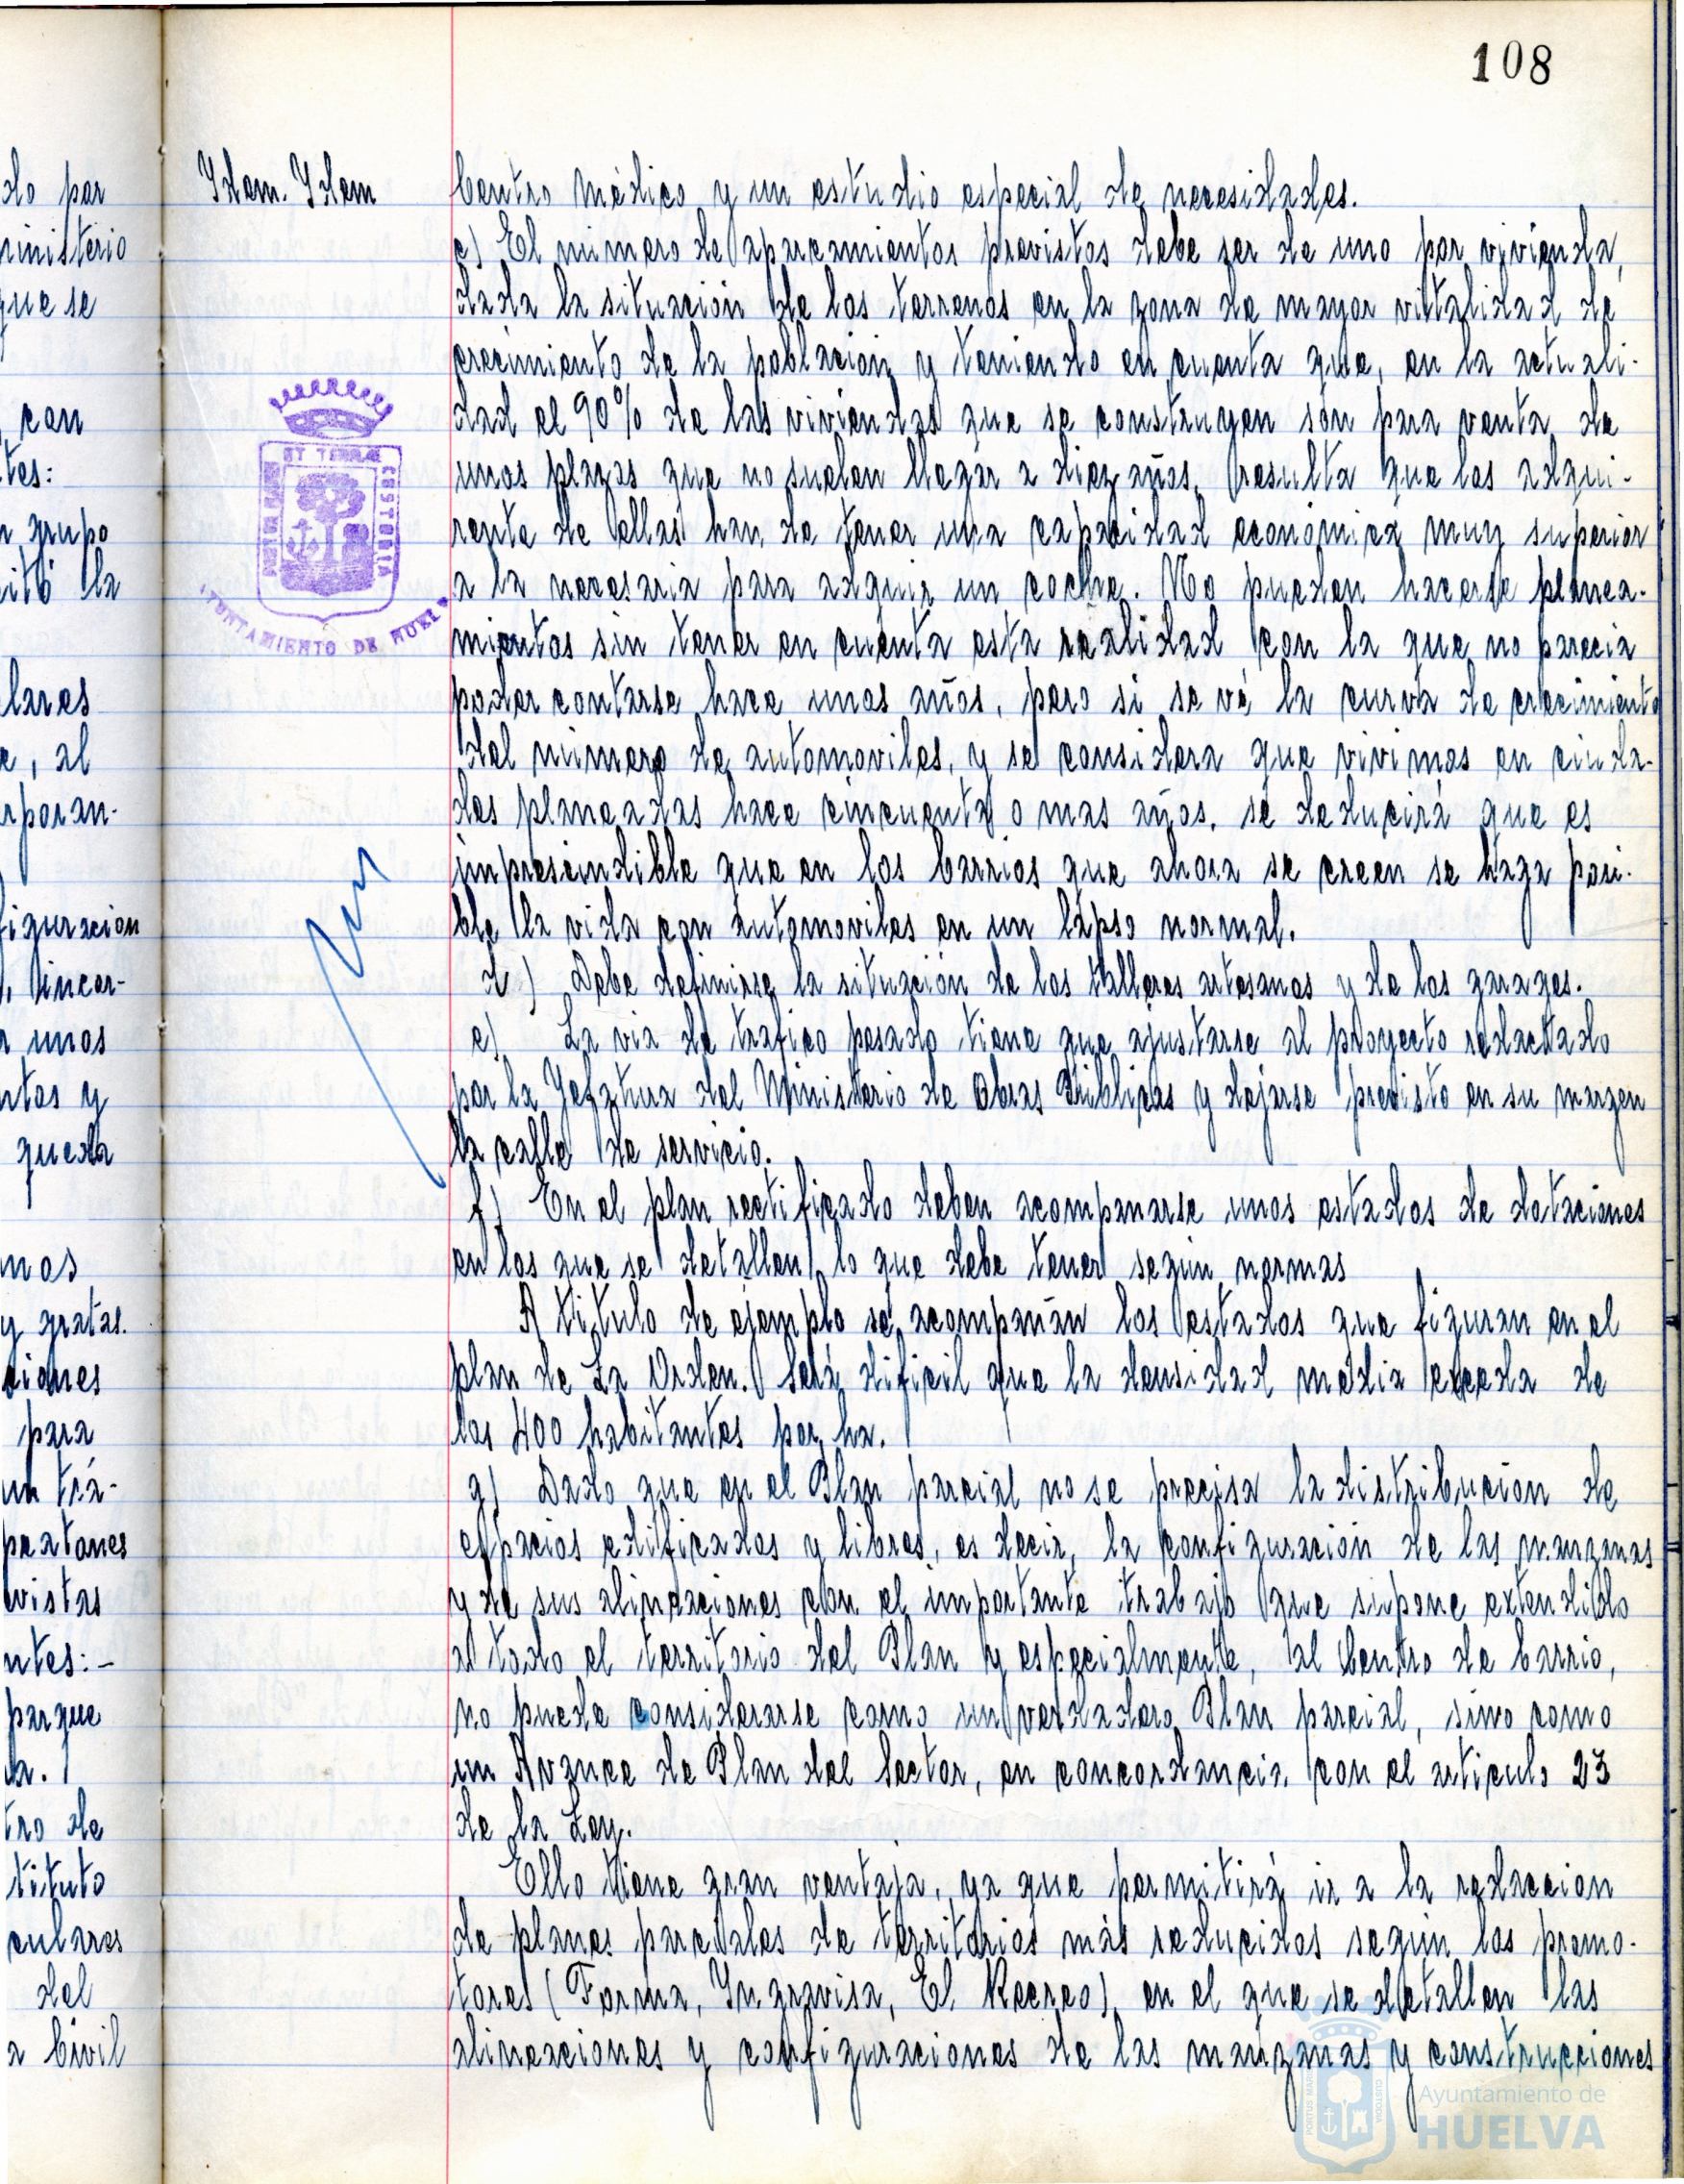 108
do por
ministerio
que se
con
tes:
n grupo
citó la
lares
e, al
rporan-
figuracion
, incor-
r unos
ntos y
queda
mos
y gratas.
ciones
para
un trá-
peatones
vistas
ntes:-
parque
la.
tro de
tituto
culares
del
a Civil
Ydem. Ydem
PORTUS MARIS
ET TERRAE
CUSTODIA
AYUNTAMIENTO DE HUELVA
Centro Médico y un estudio especial de necesidades.
c) El numero de aparcamientos previstos debe ser de uno por vivienda,
dada la situación de los terrenos en la zona de mayor vittalidad de
crecimiento de la población y teniendo en cuenta que, en la actuali-
dad el 90% de las viviendas que se construyen són para venta de
unos plazos que no suelen llegar a diez años, resulta que los adqui-
rente de ellas han de tener una capacidad económica muy superior
a la necesaria para adquir un coche. No pueden hacerse planea-
mientos sin tener en cuenta esta realidad con la que no parecia
poder contarse hace unos años, pero si se vé la curva de crecimiento
del numero de automoviles, y se considera que vivimos en ciuda-
des planeadas hace cincuenta o mas años, se deducirá que es
impresindible que en los barrios que ahora se creen se haga posi-
ble la vida con automoviles en un lapso normal.
d) Debe definirse la situación de los talleres artesanos y de los garages.
e) La via de trafico pesado tiene que ajustarse al proyecto redactado
por la Jefatura del Ministerio de Obras Públicas y dejarse previsto en su margen
la calle de servicio.
f) En el plan rectificado deben acompanarse unos estados de dotaciones
en los que se detallen lo que debe tener según normas
A titulo de ejemplo se acompañan los estados que figuran en el
plan de La Orden. Será dificil que la densidad media exceda de
los 400 habitantes por ha.
g) Dado que en el Plan parcial no se precisa la distribucion de
espacios edificados y libres, es decir, la configuración de las manzanas
y de sus alineaciones con el importante trabajo que supone extendido
a todo el territorio del Plan y especialmente, al Centro de barrio,
no puede considerarse como un verdadero Plan parcial, sino como
un Avance de Plan del Sector, en concordancia con el articulo 23
de la Ley.
Ello tiene gran ventaja, ya que permitirá ir a la redaccion
de planes parciales de territorios más reducidos según los promo-
tores (Forma, Ingravisa, El Recreo) en el que se detallen las
alineaciones y configuraciones de las manzanas y construcciones
Ayuntamiento de
HUELVA